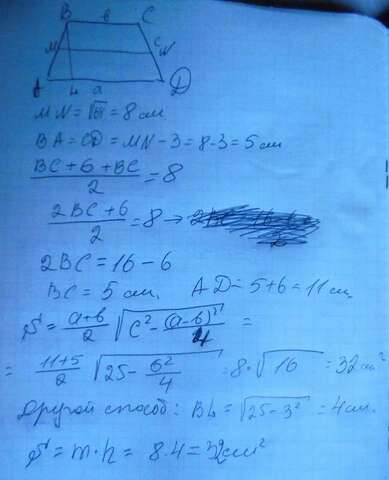 B в C
M c N
A L a D
MN = √64 = 8 см
BA = CD = MN - 3 = 8-3 = 5 см
(BC + 6 + BC)/2 = 8
(2BC + 6)/2 = 8 →
2BC = 16 - 6
BC = 5 см, AD = 5+6 = 11 см,
S = (a+b)/2 √(c² - (a-b)²/4) =
= (11+5)/2 √(25 - 6²/4) = 8·√16 = 32 см²
Другой способ: BL = √(25-3²) = 4 см.
S = m·h = 8·4 = 32 см²